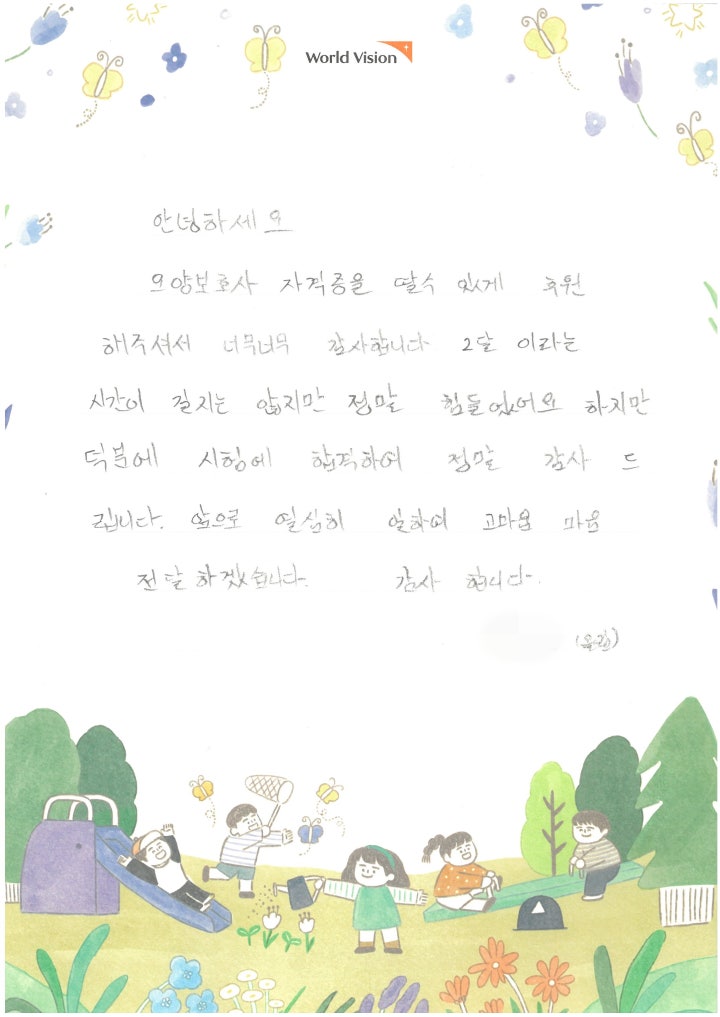 World Vision
안녕하세요
요양보호사 자격증을 딸수 있게 후원
해주셔서 너무너무 감사합니다 2달 이라는
시간이 길지는 않지만 정말 힘들었어요 하지만
덕분에 시험에 합격하여 정말 감사 드
립니다. 앞으로 열심히 일하여 고마운 마음
전달하겠습니다. 감사 합니다.